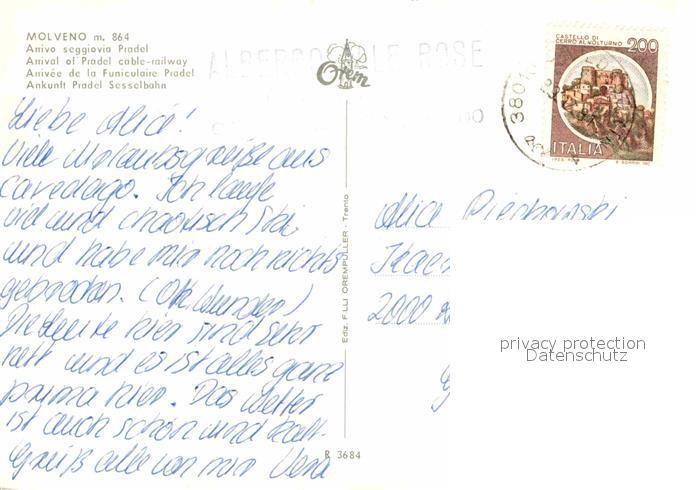 MOLVENO m. 864
Arrivo seggiovia Pradel
Arrival of Pradel cable-railway
Arrivée de la Funiculaire Pradel
Ankunft Pradel Sesselbahn
ALBERGO LE ROSE
Orem
CASTELLO DI
CERRO AL VOLTURNO
200
ITALIA
3801
Liebe Alice!
Viele Urlaubsgrüße aus
Cavedago. Ich laufe
viel und chaotisch Ski
und habe mir noch nichts
gebrochen. (Oh Wunder)
Die Leute hier sind sehr
nett und es ist alles ganz
prima hier. Das Wetter
ist auch schön und kalt.
Grüß alle von mir Vera
Ediz. F.LLI OREMPULLER - Trento
R 3684
Alice
2000
privacy protection
Datenschutz